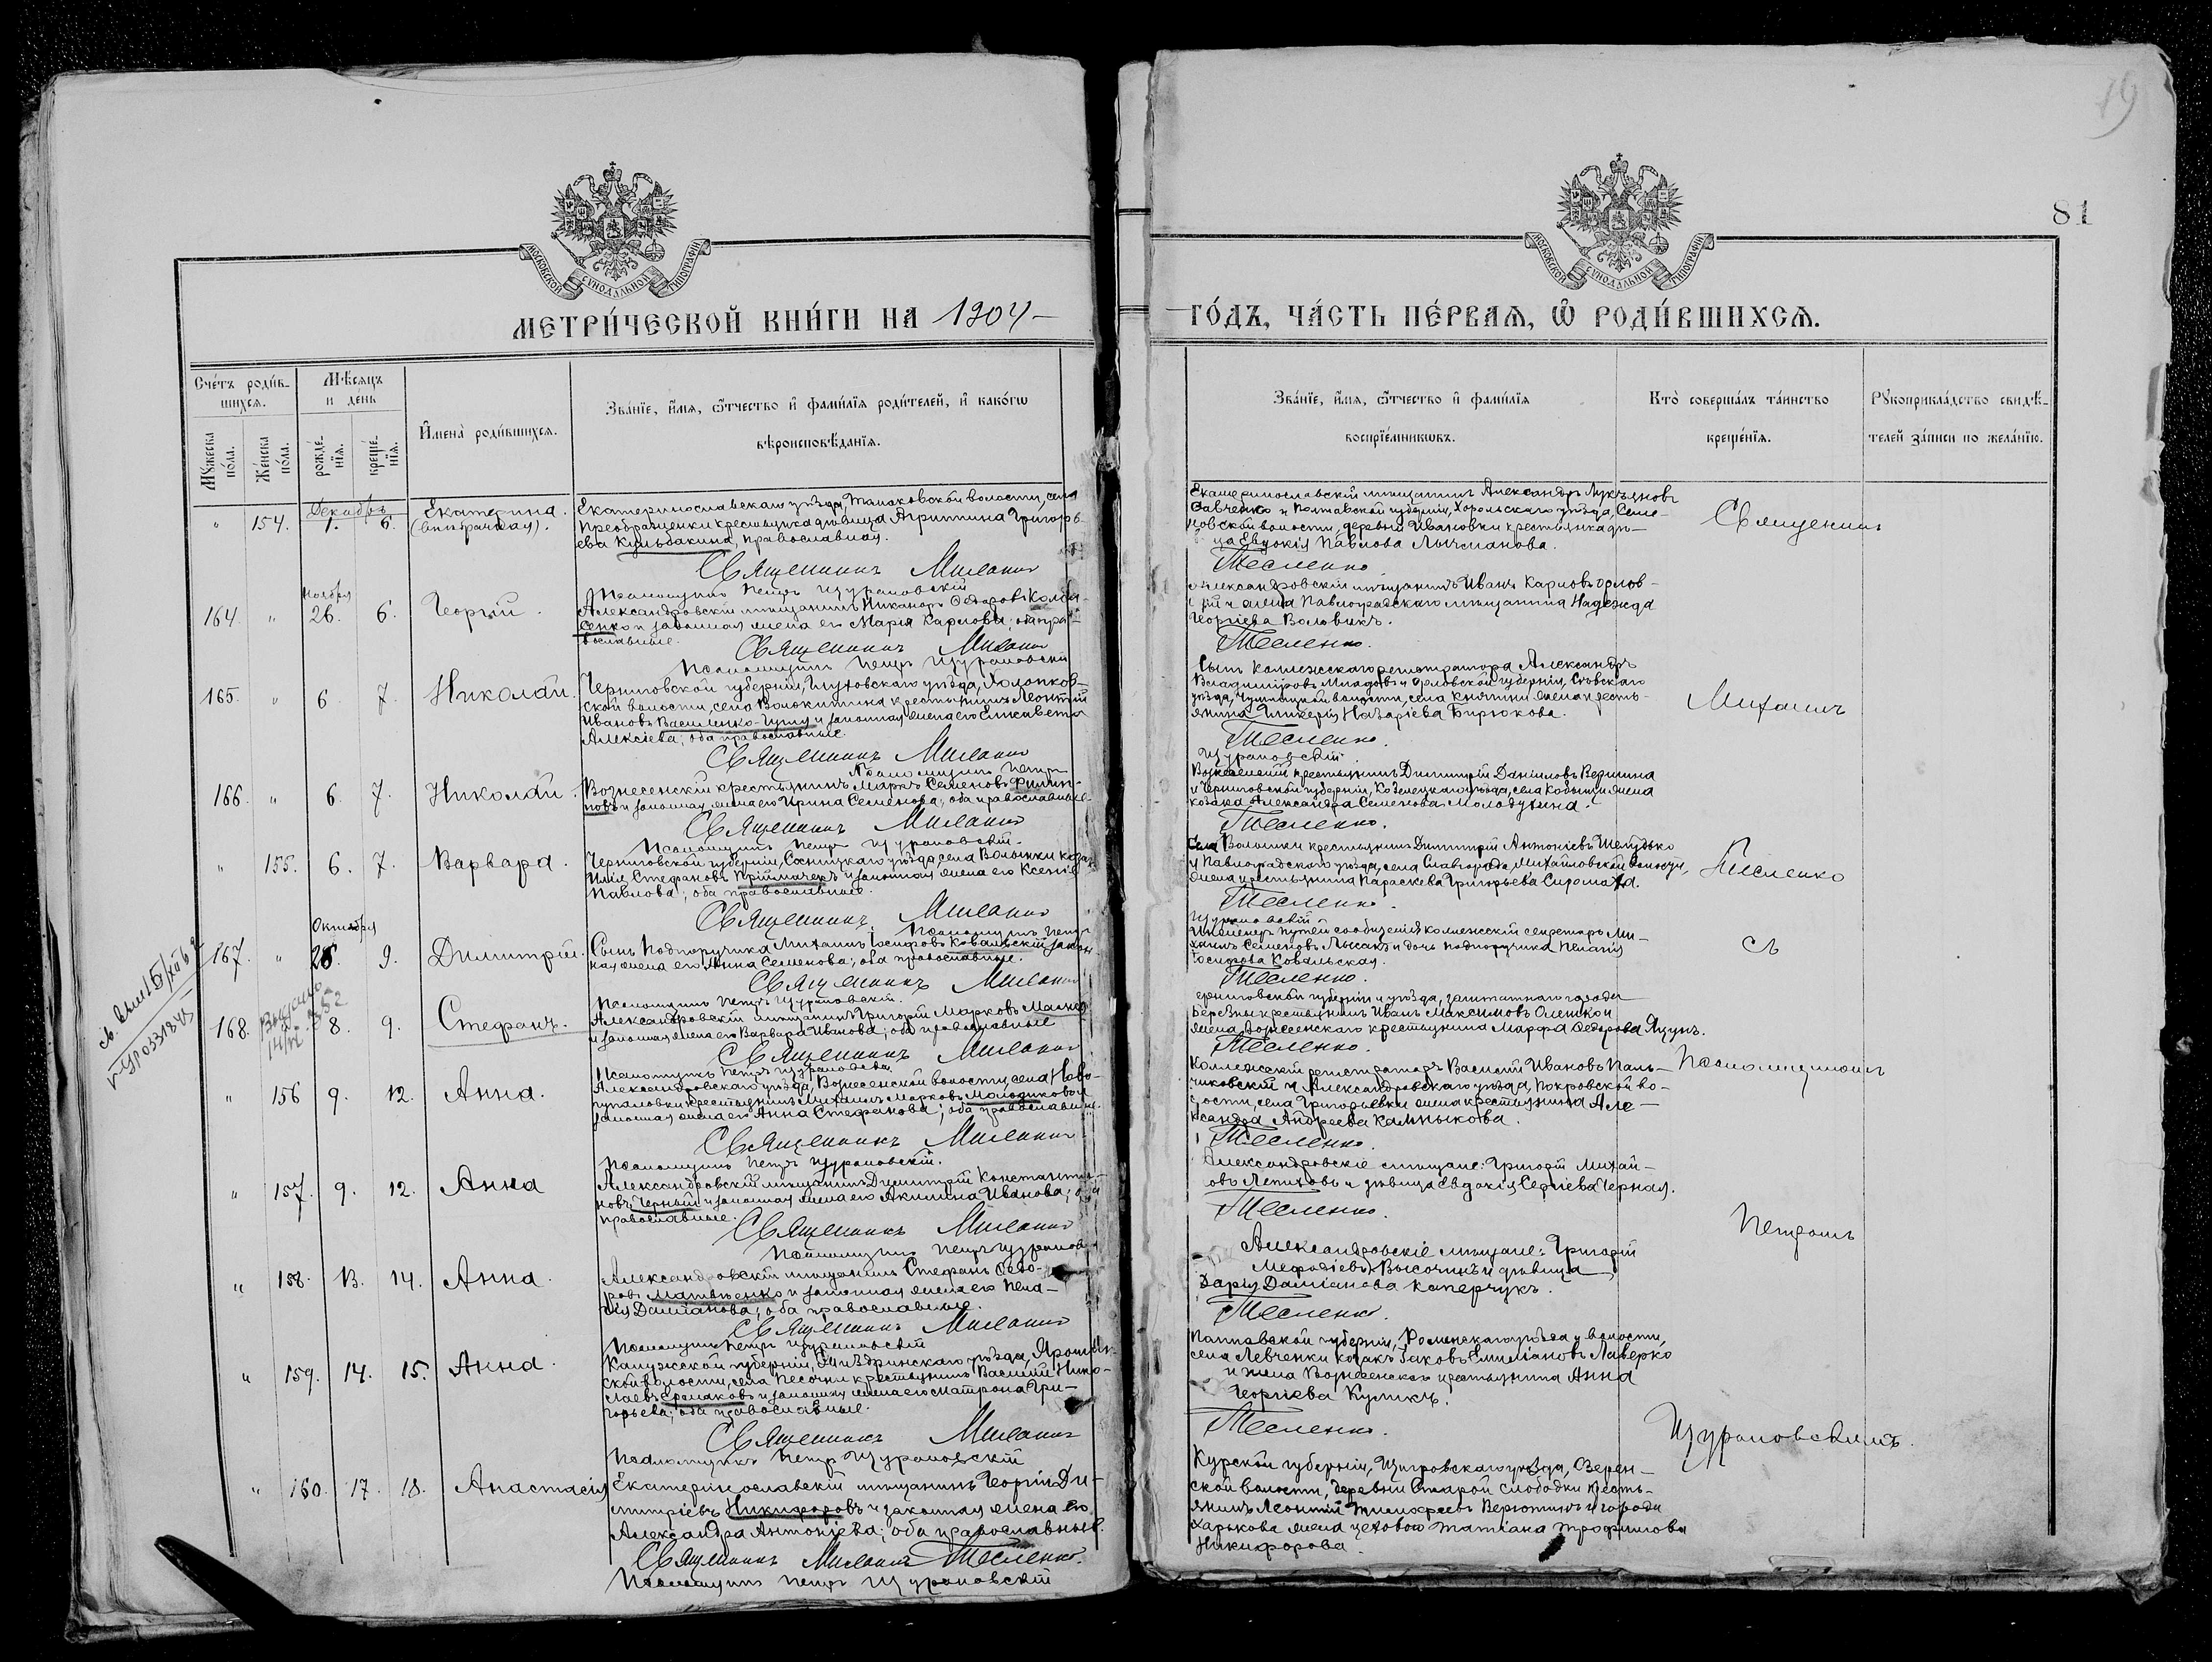 19
81
МОСКОВСКОЙ СУНОДАЛЬНОЙ ТИПОГРАФІИ
МЕТРИЧЕСКОЙ КНИГИ НА 1904
Счетъ родившихся.
Мужеска пола.
Женска пола.
Мѣсяцъ и день
рожденія.
крещенія.
Имена родившихся.
Званіе, имя, отчество и фамилія родителей, и какогѡ
вѣроисповѣданія.
Декабрь
" 154. 1. 6. Екатерина. (внѣбрачная).
Екатеринославскаго уѣзда, Томаковской волости, села
Преображенки крестьянка дѣвица Агриппина Григорь-
ева Кульбакина, православная.
Священникъ Тесленко
Псаломщикъ Петръ Щурановскій
Ноября
164. " 26. 6. Георгій.
Александровскій мѣщанинъ Никаноръ Ѳедоровъ
и законная жена его Марія Карпова; оба пра-
вославные.
Священникъ Тесленко.
Псаломщикъ Петръ Щурановскій
165. " 6. 7. Николай.
Черниговской губерніи, Глуховскаго уѣзда,
ской волости, села Волокитина крестьянинъ Леонтій
Ивановъ Василенко и законная жена его Елисавета
Алексіева; оба православные.
Священникъ Тесленко.
Псаломщикъ Петръ Щурановскій
166. " 6. 7. Николай.
Вознесенскій крестьянинъ Маркъ Семеновъ Филип-
повъ и законная жена его Ирина Семенова; оба православные.
Священникъ Тесленко.
Псаломщикъ Петръ Щурановскій.
" 155. 6. 7. Варвара.
Черниговской губерніи, Сосницкаго уѣзда, села Волынки козакъ
Илія Стефановъ Пріймачекъ и законная жена его Ксенія
Павлова; оба православные.
Священникъ Тесленко.
Псаломщикъ Петръ Щурановскій
Октября
167. " 26. 9. Димитрій.
Сынъ Подпоручика Михаилъ Іосифовъ Ковальскій и закон-
ная жена его Анна Семенова; оба православные.
Священникъ Тесленко.
Псаломщикъ Петръ Щурановскій.
168. 8. 9. Стефанъ.
Александровскій мѣщанинъ Григорій Марковъ
и законная жена его Варвара Иванова; оба православные
Священникъ Тесленко.
Псаломщикъ Петръ Щурановскій
" 156 9. 12. Анна.
Александровскаго уѣзда, Вознесенской волости, села Ново-
крестьянинъ Михаилъ Марковъ Молодиковъ и
законная жена его Анна Стефанова; оба православные.
Священникъ Тесленко.
Псаломщикъ Петръ Щурановскій.
" 157. 9. 12. Анна
Александровскій мѣщанинъ Димитрій Константи-
новъ Черный и законная жена его Акилина Иванова; оба
православные.
Священникъ Тесленко.
Псаломщикъ Петръ Щурановскій
" 158. 13. 14. Анна.
Александровскій мѣщанинъ Стефанъ Ѳедо-
ровъ Матвѣенко и законная жена его Пела-
гія Даміанова; оба православные.
Священникъ Тесленко.
Псаломщикъ Петръ Щурановскій
" 159. 14. 15. Анна.
Калужской губерніи, уѣзда,
ской волости, села Песочни крестьянинъ Василій Нико-
лаевъ Ермаковъ и законная жена его Матрона Гри-
горьева; оба православные.
Священникъ Тесленко.
Псаломщикъ Петръ Щурановскій
" 160. 17. 18. Анастасія
Екатеринославскій мѣщанинъ Георгій Ди-
митріевъ Никифоровъ и законная жена его
Александра Антоніева; оба православные.
Священникъ Тесленко.
Псаломщикъ Петръ Щурановскій
МОСКОВСКОЙ СУНОДАЛЬНОЙ ТИПОГРАФІИ
ГОДЪ, ЧАСТЬ ПЕРВАЯ, Ѡ РОДИВШИХСЯ.
Званіе, имя, отчество и фамилія
воспріемникѡвъ.
Кто совершалъ таинство
крещенія.
Рукоприкладство свидѣ-
телей записи по желанію.
Екатеринославскій мѣщанинъ Александръ Лукьяновъ
Савченко и Полтавской губерніи, Хорольскаго уѣзда, Семе-
новской волости, деревни Ивановки крестьянка дѣви-
ца Евдокія Павлова Лычманова.
Александровскій мѣщанинъ Иванъ Карповъ Орлов-
скій и жена Павлоградскаго мѣщанина Надежда
Георгіева Воловикъ.
Сынъ Коллежскаго регистратора Александръ
Владиміровъ и Орловской губерніи, Сѣвскаго
уѣзда, волости, села жена кресть-
янина Гликерія Назаріева Бирюкова.
Вознесенскій крестьянинъ Димитрій Даніиловъ Вершина
и Черниговской губерніи, Козелецкаго уѣзда, села Кобыжчи жена
козака Александра Семенова
Села Волынки крестьянинъ Димитрій Антоніевъ Шепудько
и Павлоградскаго уѣзда, села Славгорода, Михайловской волости,
жена крестьянина Параскева Григорьева Сиромаха.
Инженеръ путей сообщенія коллежскій секретарь Ми-
хаилъ Семеновъ Лысакъ и дочь подпоручика Пелагія
Іосифова Ковальская.
Черниговской губерніи и уѣзда, заштатнаго города
Березны крестьянинъ Иванъ Максимовъ Олешко и
жена Вознесенскаго крестьянина Марфа Ѳедорова Яцунъ.
Коллежскій регистраторъ Василій Ивановъ Паль-
чиковскій и Александровскаго уѣзда, Покровской во-
лости, села Григорьевки жена крестьянина Але-
ксандра Андреева Калмыкова.
Александровскіе мѣщане: Григорій Михай-
ловъ Лепиховъ и дѣвица Евдокія Сергіева Черная.
Александровскіе мѣщане: Григорій
Меѳодіевъ Высочинъ и дѣвица
Дарія Даміанова Каперчукъ.
Полтавской губерніи, Роменскаго уѣзда и волости,
села Левченки козакъ Іаковъ Емиліановъ Лаверко
и жена Вознесенскаго крестьянина Анна
Георгіева Куликъ.
Курской губерніи, Щигровскаго уѣзда, Озерен-
ской волости, деревни Старой слободки кресть-
янинъ Леонтій Тимоѳеевъ Верютинъ и города
Харькова жена цеховаго Татіана Трофимова
Никифорова.
Священникъ
Михаилъ
Тесленко
съ
Псаломщикомъ
Петромъ
Щурановскимъ.